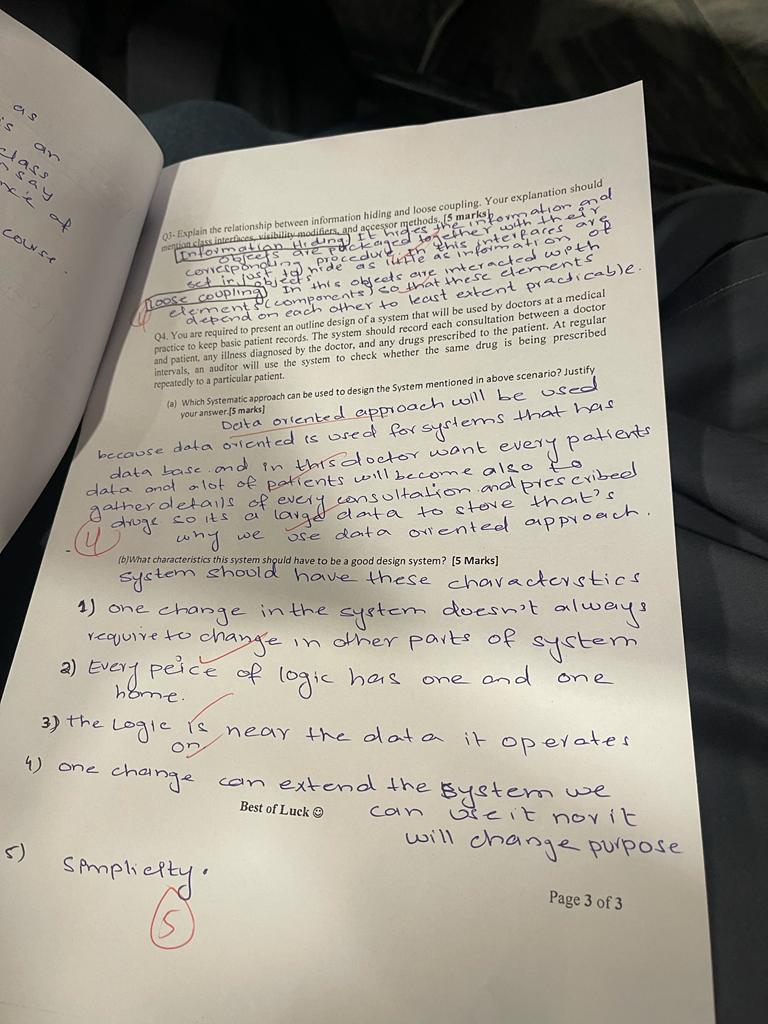 as
is an
class
say
of
course.
Q3- Explain the relationship between information hiding and loose coupling. Your explanation should
mention class interfaces, visibility modifiers, and accessor methods. [5 marks]
Information Hiding) It hides the information and
objects are packaged together with their
corresponding procedure. In this interfaces are
set in just to hide as little as information of
objects
Loose coupling) In this objects are interacted with
elements (components) so that these elements
depend on each other to least extent practicable.
Q4. You are required to present an outline design of a system that will be used by doctors at a medical
practice to keep basic patient records. The system should record each consultation between a doctor
and patient, any illness diagnosed by the doctor, and any drugs prescribed to the patient. At regular
intervals, an auditor will use the system to check whether the same drug is being prescribed
repeatedly to a particular patient.
(a) Which Systematic approach can be used to design the System mentioned in above scenario? Justify
your answer.[5 marks]
Data oriented approach will be used
because data oriented is used for systems that has
data base. and in this doctor want every patients
data and alot of patients will become also to
gather details of every consultation and prescribed
drugs so its a large data to store that's
why we use data oriented approach.
4
(b)What characteristics this system should have to be a good design system? [5 Marks]
System should have these characterstics
1) one change in the system doesn't always
require to change in other parts of system
2) Every peice of logic has one and one
home.
3) the Logic is near the data it operates
on
4) one change can extend the system we
Best of Luck ☺ can use it nor it
will change purpose
5) Simplicity.
Page 3 of 3
5